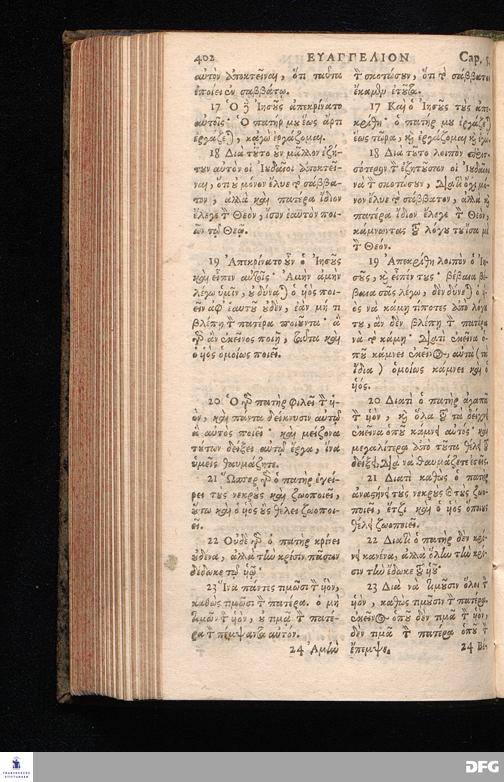 402 ΕΥΑΓΓΕΛΙΟΝ Cap. 5.
αὐτὸν ἀποκτεῖναι, ὅτι ταῦτα
ἐποίει ἐν σαββάτῳ.
17 Ὁ δὲ Ἰησοῦς ἀπεκρίνατο
αὐτοῖς· Ὁ πατήρ μου ἕως ἄρτι
ἐργάζεται, κἀγὼ ἐργάζομαι.
18 Διὰ τοῦτο οὖν μᾶλλον ἐζή-
τουν αὐτὸν οἱ Ἰουδαῖοι ἀποκτεῖ-
ναι, ὅτι οὐ μόνον ἔλυε τὸ σάββα-
τον, ἀλλὰ καὶ πατέρα ἴδιον
ἔλεγε τὸν Θεὸν, ἴσον ἑαυτὸν ποι-
ῶν τῷ Θεῷ.
19 Ἀπεκρίνατο οὖν ὁ Ἰησοῦς
καὶ εἶπεν αὐτοῖς· Ἀμὴν ἀμὴν
λέγω ὑμῖν, οὐ δύναται ὁ υἱὸς ποι-
εῖν ἀφ᾽ ἑαυτοῦ οὐδὲν, ἐὰν μή τι
βλέπῃ τὸν πατέρα ποιοῦντα· ἃ
γὰρ ἂν ἐκεῖνος ποιῇ, ταῦτα καὶ
ὁ υἱὸς ὁμοίως ποιεῖ.
20 Ὁ γὰρ πατὴρ φιλεῖ τὸν υἱ-
όν, καὶ πάντα δείκνυσιν αὐτῷ
ἃ αὐτὸς ποιεῖ· καὶ μείζονα
τούτων δείξει αὐτῷ ἔργα, ἵνα
ὑμεῖς θαυμάζητε.
21 Ὥσπερ γὰρ ὁ πατὴρ ἐγεί-
ρει τοὺς νεκροὺς καὶ ζωοποιεῖ,
οὕτω καὶ ὁ υἱὸς οὓς θέλει ζωοποι-
εῖ.
22 Οὐδὲ γὰρ ὁ πατὴρ κρίνει
οὐδένα, ἀλλὰ τὴν κρίσιν πᾶσαν
δέδωκε τῷ υἱῷ·
23 Ἵνα πάντες τιμῶσι τὸν υἱὸν,
καθὼς τιμῶσι τὸν πατέρα. ὁ μὴ
τιμῶν τὸν υἱὸν, οὐ τιμᾷ τὸν πατέ-
ρα τὸν πέμψαντα αὐτόν.
24 Ἀμὴν
τὸν σκοτώσουν, ὅτι τὸ σάββατον
ἔκαμνε ἐτοῦτα.
17 Καὶ ὁ Ἰησοῦς τοὺς ἀπε-
κρίθη· ὁ πατήρ μου ἐργάζεται
ἕως τώρα, καὶ ἐργάζομαι καὶ ἐγώ.
18 Διὰ τοῦτο λοιπὸν περισ-
σότερον τὸν ἐζητοῦσαν οἱ Ἰουδαῖοι
νὰ τὸν σκοτώσουν, διατὶ ὄχι μό-
νον ἔλυε τὸ σάββατον, ἀλλὰ καὶ
πατέρα ἴδιον ἔλεγε τὸν Θεὸν,
κάμνωντας τοῦ λόγου του ἴσα μὲ
τὸν Θεόν.
19 Ἀπεκρίθη λοιπὸν ὁ Ἰη-
σοῦς, καὶ εἶπέν τους· βέβαια βέ-
βαια σᾶς λέγω, δὲν δύνεται ὁ υἱ-
ὸς νὰ κάμῃ τίποτες ἀπὸ λόγου
του, ἂν δὲν βλέπῃ τὸν πατέρα
νὰ τὸ κάμῃ· διατὶ ἐκεῖνα ὁ-
ποῦ κάμνει ἐκεῖνος, αὐτὰ (τὰ
ἴδια) ὁμοίως κάμνει καὶ ὁ
υἱός.
20 Διατὶ ὁ πατὴρ ἀγαπᾷ
τὸν υἱὸν, καὶ ὅλα τοῦ τὰ δείχνει
ἐκεῖνα ὁποῦ κάμνει αὐτός· καὶ
μεγαλίτερα ἀπὸ τοῦτα θέλει τοῦ
δείξει, διὰ νὰ θαυμάζετε ἐσεῖς.
21 Διατὶ καθὼς ὁ πατὴρ
ἀναστήνει τοὺς νεκροὺς καὶ τοὺς ζωο-
ποιεῖ, ἔτζι καὶ ὁ υἱὸς ὅποιους
θέλει ζωοποιεῖ.
22 Διατὶ ὁ πατὴρ δὲν κρί-
νει κανένα, ἀλλὰ ὅλην τὴν κρί-
σιν τὴν ἔδωκε τοῦ υἱοῦ·
23 Διὰ νὰ τιμοῦσιν ὅλοι τὸν
υἱὸν, καθὼς τιμοῦσιν τὸν πατέρα.
ἐκεῖνος ὁποῦ δὲν τιμᾷ τὸν υἱὸν,
δὲν τιμᾷ τὸν πατέρα ὁποῦ τὸν
ἔπεμψε.
24 Βέ-
FRANCKESCHE STIFTUNGEN
DFG